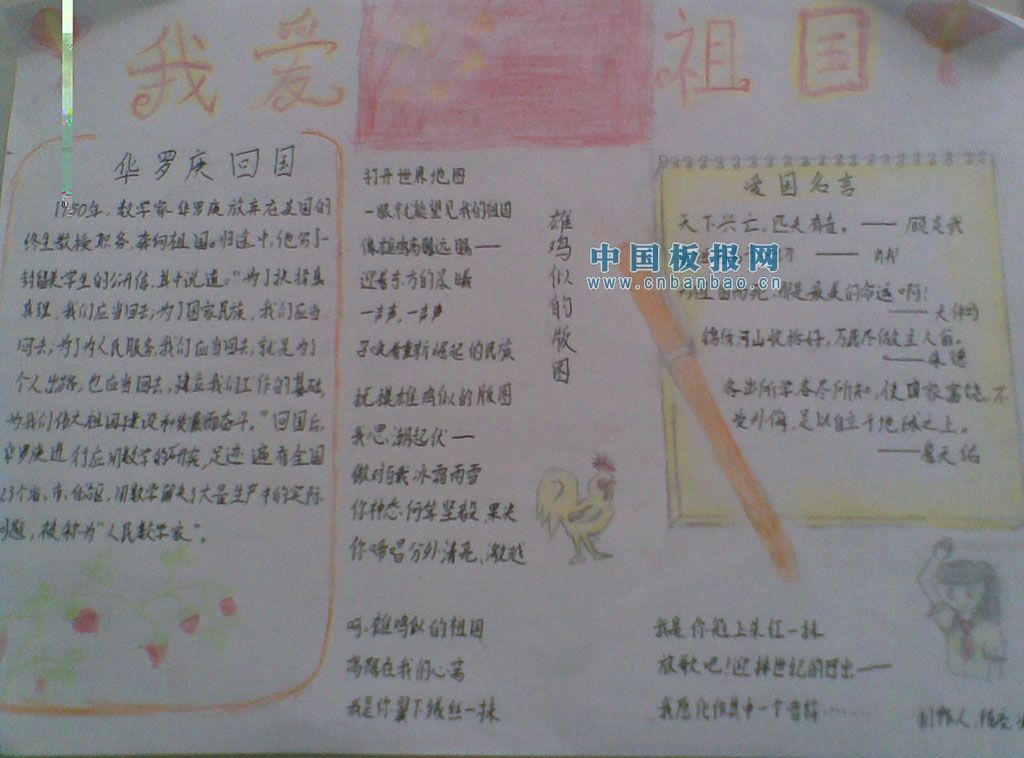 我爱祖国
华罗庚回国
1950年，数学家华罗庚放弃在美国的
终生教授职务，奔向祖国。归途中，他写了一
封留美学生的公开信，其中说道："为了抉择真
真理，我们应当回去；为了国家民族，我们应当
回去；为了为人民服务，我们应当回去；就是为了
个人出路，也应当回去，建立我们工作的基础，
为我们伟大祖国的建设和发展而奋斗。"回国后，
华罗庚进行应用数学的研究，足迹遍布全国
23个省、市、自治区，用数学解决了大量生产中的实际
问题，被称为"人民数学家"。
打开世界地图
一眼就能望见我的祖国
像雄鸡高瞻远瞩——
迎着东方的晨曦
一声，一声
呼唤着重新崛起的民族
抚摸雄鸡似的版图
我思潮起伏——
傲对
冰霜雨雪
你神态何等坚毅、果决
你啼唱分外清亮、激越
雄鸡似的版图
呵，雄鸡似的祖国
高踞在我的心窝
我是你翼下绒丝一抹
我是你冠上朱红一抹
放歌吧！迎接世纪的日出——
我愿化作其中一个音符……
爱国名言
天下兴亡，匹夫有责。——顾炎武
中国板报网
www.cnbanbao.cn
为祖国而死，那是最美的命运啊！
——大仲马
锦绣河山收拾好，万民尽做主人翁。
——朱德
各出所学，各尽所知，使国家富强不
受外侮，足以自立于地球之上。
——詹天佑
制作人